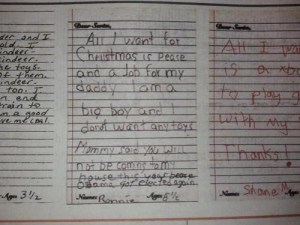 ver and I
old I
indeer.
indeer
the toys.
of them.
indeer
too. I
n and
train to
m a good
ve me coal.
Age: 3 1/2
Dear Santa,
All I want for
Christmas is peace
and a Job for my
daddy. I am a
big boy and
dont want any toys
Mommy said you will
not be coming to my
house this year becase
obama got elected again
Name: Ronnie Age: 6 1/2
Dear Santa,
All I
is a
to play
with my
Thanks!
Name: Shane